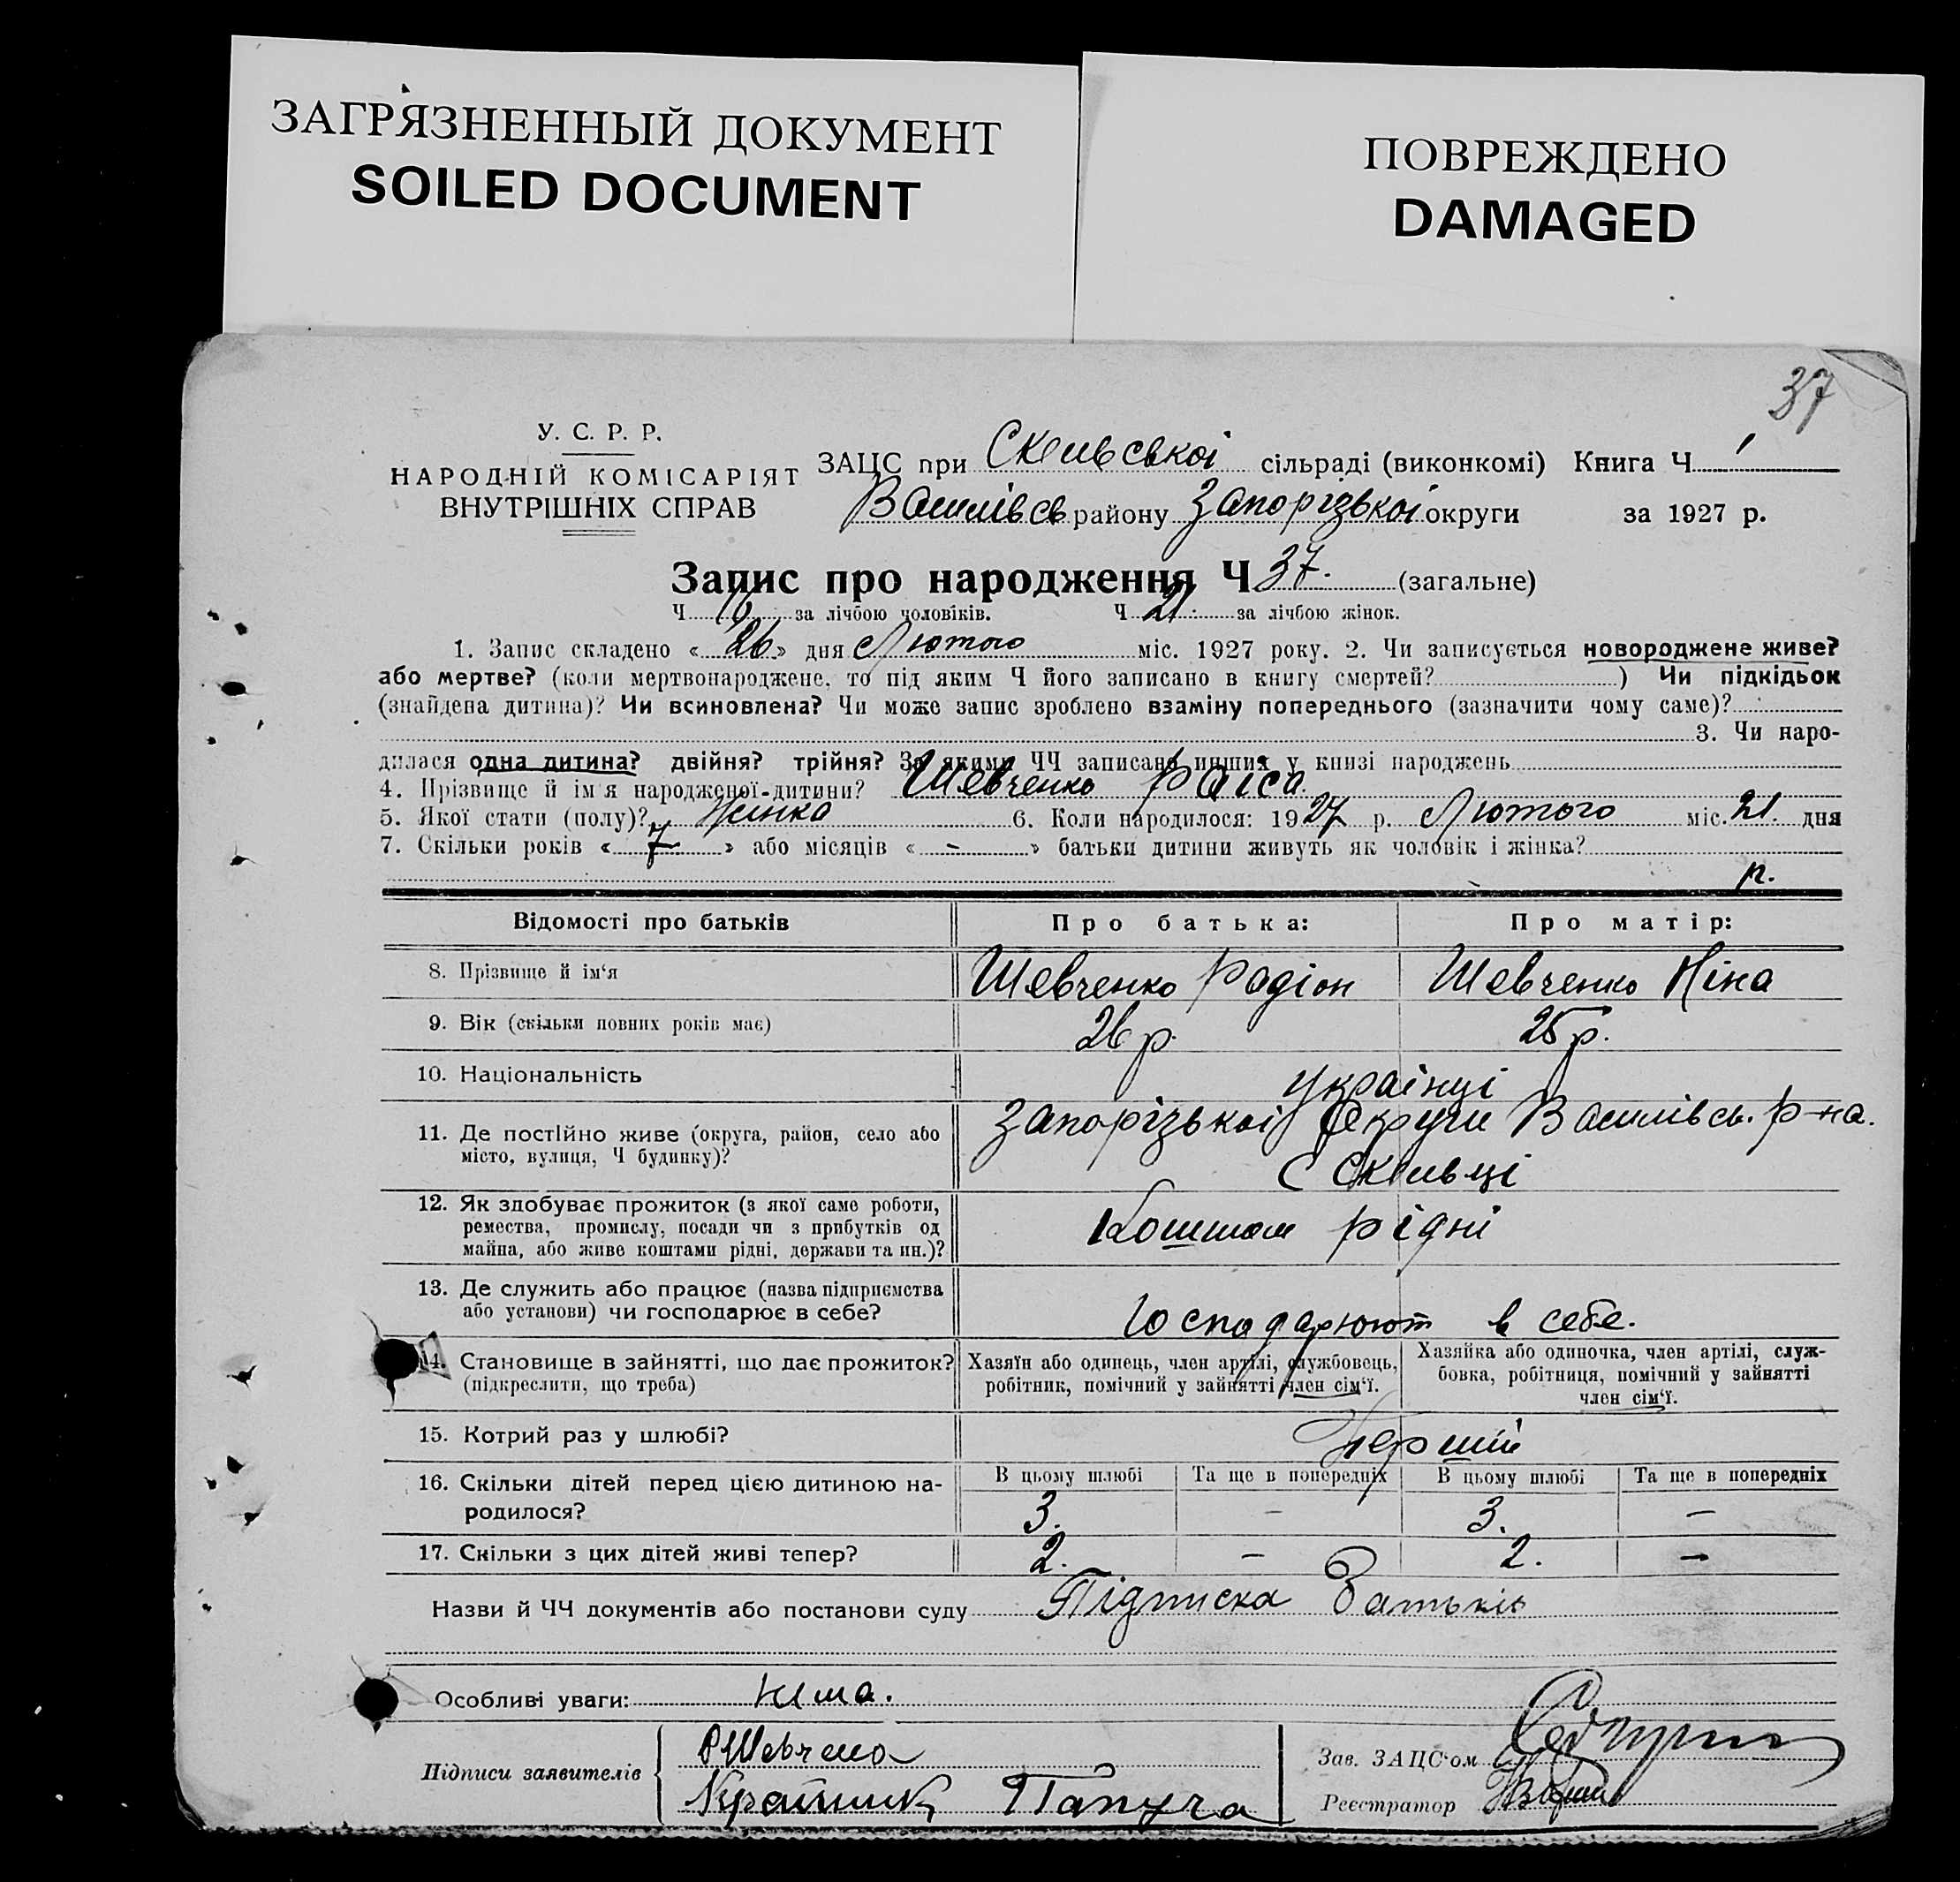 ЗАГРЯЗНЕННЫЙ ДОКУМЕНТ
SOILED DOCUMENT
ПОВРЕЖДЕНО
DAMAGED
37
У. С. Р. Р.
НАРОДНІЙ КОМІСАРІЯТ
ВНУТРІШНІХ СПРАВ
ЗАЦС при Скельської сільраді (виконкомі) Книга Ч 1
Василівсь району Запорізької округи за 1927 р.
Запис про народження Ч 37. (загальне)
Ч 16 за лічбою чоловіків. Ч 21 за лічбою жінок.
1. Запис складено «26» дня Лютого міс. 1927 року. 2. Чи записується новороджене живе?
або мертве? (коли мертвонароджене, то під яким Ч його записано в книгу смертей? ) Чи підкідьок
(знайдена дитина)? Чи всиновлена? Чи може запис зроблено взаміну попереднього (зазначити чому саме)?
3. Чи наро-
дилася одна дитина? двійня? трійня? За якими ЧЧ записано инших у книзі народжень
4. Прізвище й ім'я народженої-дитини? Шевченко Раїса.
5. Якої стати (полу)? Жинка 6. Коли народилося: 1927 р. Лютого міс. 21. дня
7. Скільки років «7» або місяців «-» батьки дитини живуть як чоловік і жінка?
р.
Відомості про батьків Про батька: Про матір:
8. Прізвище й ім‘я Шевченко Радіон Шевченко Ніна
9. Вік (скільки повних років має) 26 р. 25 р.
10. Національність Українці
11. Де постійно живе (округа, район, село або
місто, вулиця, Ч будинку)?
Запорізької Округи Василівсь. р-на.
С Скельці
12. Як здобуває прожиток (з якої саме роботи,
ремества, промислу, посади чи з прибутків од
майна, або живе коштами рідні, держави та ин.)?
Коштом рідні
13. Де служить або працює (назва підприємства
або установи) чи господарює в себе?
Господарюют в себе.
14. Становище в зайнятті, що дає прожиток?
(підкреслити, що треба)
Хазяїн або одинець, член артілі, службовець,
робітник, помічний у зайнятті член сім‘ї.
Хазяйка або одиночка, член артілі, служ-
бовка, робітниця, помічний у зайнятті
член сім‘ї.
15. Котрий раз у шлюбі? Перший
16. Скільки дітей перед цією дитиною на-
родилося?
В цьому шлюбі Та ще в попередніх В цьому шлюбі Та ще в попередніх
3. - 3. -
17. Скільки з цих дітей живі тепер? 2. - 2. -
Назви й ЧЧ документів або постанови суду Підписка Батьків
Особливі уваги: Нема.
Підписи заявителів
РШевченко
Папуча
Зав. ЗАЦС‘ом
Реєстратор